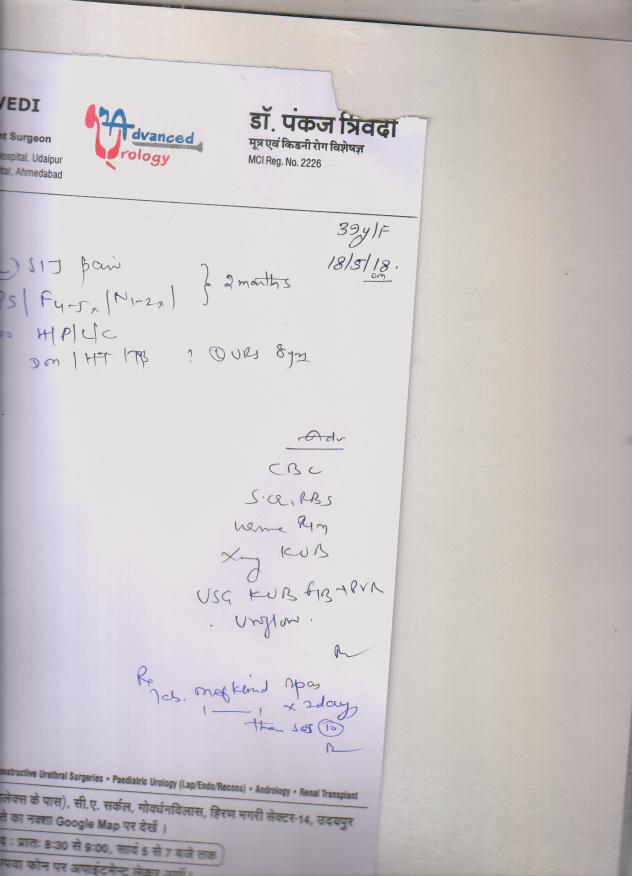 VEDI
nt Surgeon
ospital, Udaipur
tal, Ahmedabad
Advanced
Urology
डॉ. पंकज त्रिवेदी
मूत्र एवं किडनी रोग विशेषज्ञ
MCI Reg. No. 2226
39y/F
18/5/18.
pain
2 months
F4-5x/N1-2x/
H/P/L/C
DM / HT / TB ? URS 8yrs
Adv
CBC
S.Cr, RBS
Urine R/M
Xray KUB
USG KUB + PVR
Uroflow.
Tab. spas
1 — 1 x 2day
then SOS 10
onstructive Urethral Surgeries • Paediatric Urology (Lap/Endo/Recons) • Andrology • Renal Transplant
लेक्स के पास), सी.ए. सर्कल, गोवर्धनविलास, हिरण मगरी सेक्टर-14, उदयपुर
ले का नक्शा Google Map पर देखें ।
य : प्रातः 8:30 से 9:00, सायं 5 से 7 बजे तक
पया फोन पर अपाइंटमेन्ट लेकर आयें।